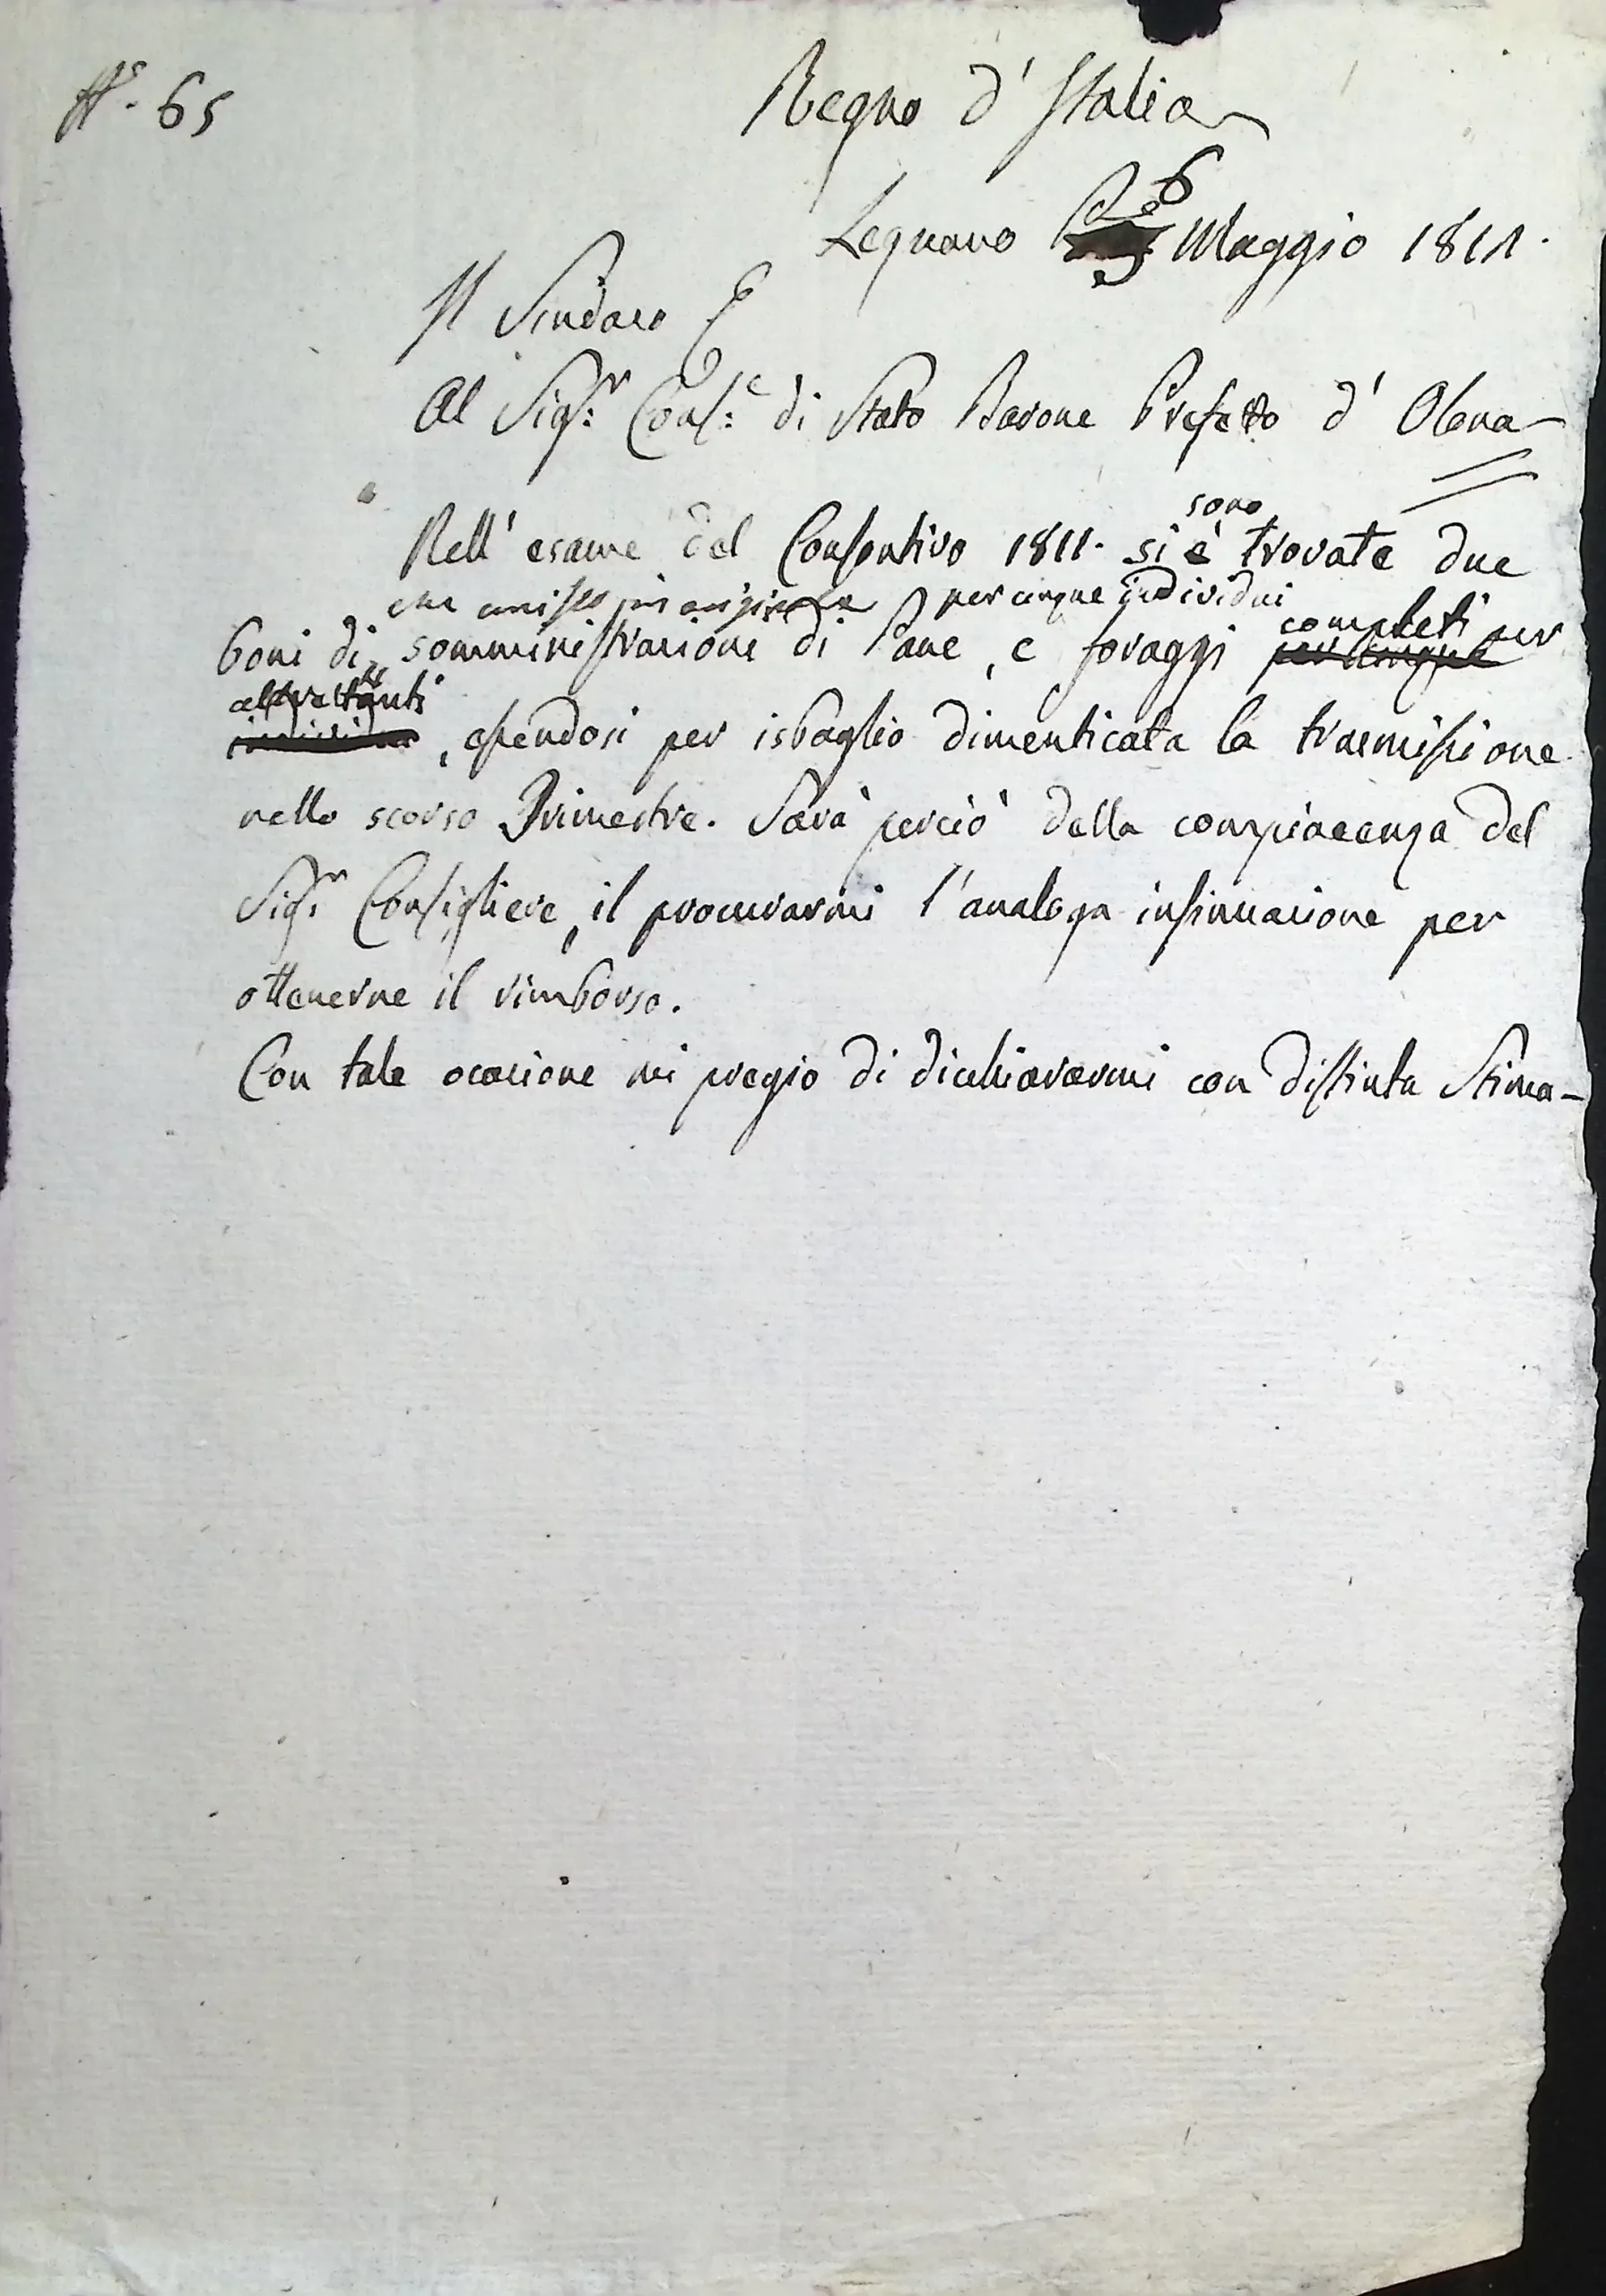 N.° 65
Regno d' Italia
Legnano 6 Maggio 1811.
Il Sindaco
Al Sig.r Cons.e di Stato Barone Prefetto d' Olona
sono
Nell' esame del Consontivo 1811. si è trovate due
che unisco in per cinque individui
completi per
boni di somministrazione di Pane, e foraggi per cinque
altrettanti
individui, essendosi per isbaglio dimenticata la trasmissione
nello scorso Trimestre. Sarà perciò della compiacenza del
Sig.r Consigliere, il procurarmi l'analoga insinuazione per
ottenerne il rimborso.
Con tale ocasione mi pregio di dichiararmi con distinta Stima